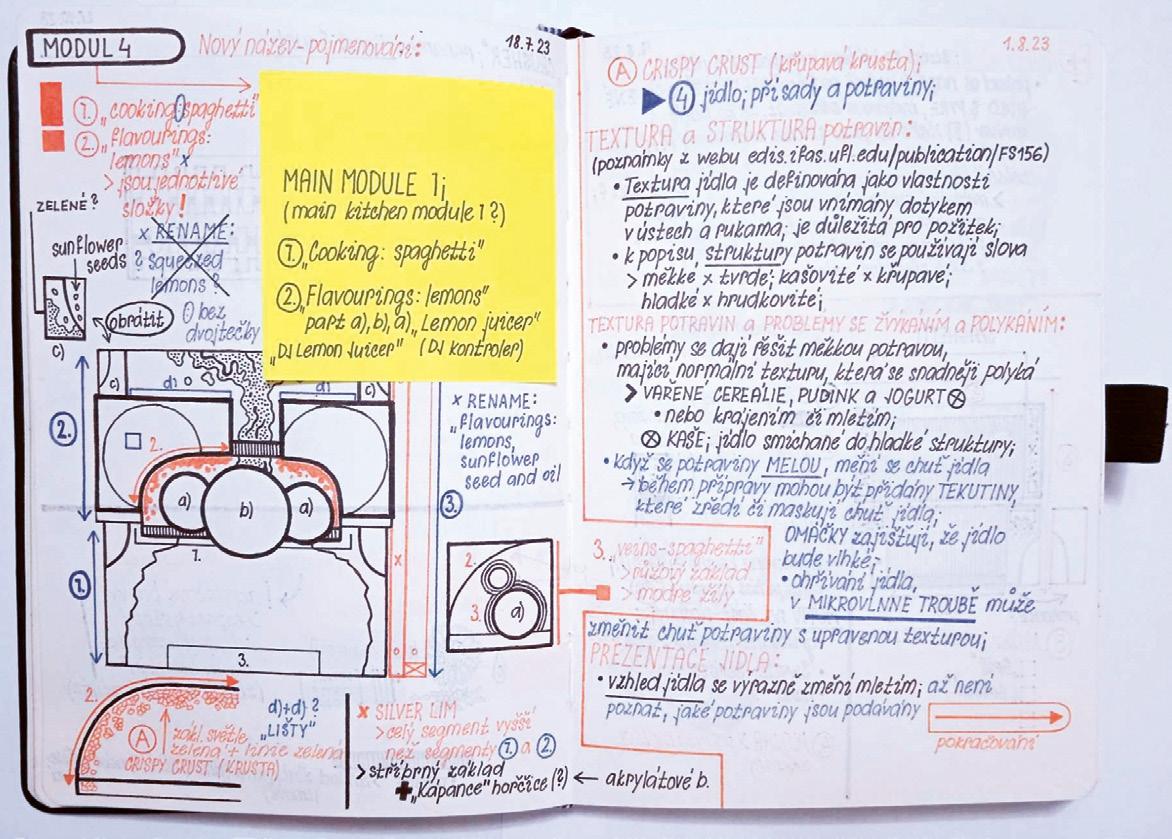 MODUL 4
Nový název - pojmenování:
18.7.23
1. „cooking: spaghetti"
2. „flavourings:
lemons" x
> jsou jednotlivé
složky!
ZELENÉ?
sunflower
seeds
c)
x RENAME:
? squeezed
lemons?
obrátit
bez
dvojtečky
MAIN MODULE 1;
(main kitchen module 1?)
1. „Cooking: spaghetti"
2. „Flavourings: lemons"
part a), b), a) „Lemon juicer"
„DJ Lemon Juicer" (DJ kontroler)
c)
d)
d)
c)
2.
2.
a)
b)
a)
1.
1.
x
3.
x RENAME:
„flavourings:
lemons,
sunflower
seed and oil
3.
2.
3.
a)
2.
A
zákl. světle
zelená + linie zelená
CRISPY CRUST (KRUSTA)
d)+d)?
„LIŠTY"
x SILVER LIM
> celý segment vyšší
než segmenty 1. a 2.
> stříbrný základ
+ „Kápance" hořčice (?) ← akrylátové b.
1.8.23
A CRISPY CRUST (křupavá krusta);
4 jídlo; přísady a potraviny;
TEXTURA a STRUKTURA potravin:
(poznámky z webu edis.ifas.ufl.edu/publication/FS156)
• Textura jídla je definována jako vlastnosti
potraviny, které jsou vnímány dotykem
v ústech a rukama; je důležitá pro požitek;
• k popisu, struktury potravin se používají slova
> měkké x tvrdé; kašovité x křupavé;
hladké x hrudkovité;
TEXTURA POTRAVIN a PROBLÉMY SE ŽVÝKÁNÍM a POLYKÁNÍM:
• problémy se dají řešit měkkou potravou,
mající normální texturu, která se snadněji polyká
> VAŘENÉ CEREÁLIE, PUDINK a JOGURT ⊗
• nebo krájením či mletím;
⊗ KAŠE; jídlo smíchané do hladké struktury;
• Když se potraviny MELOU, mění se chuť jídla
→ během přípravy mohou být přidány TEKUTINY,
které zředí či maskují chuť jídla;
OMÁČKY zajišťují, že jídlo
bude vlhké;
• ohřívání jídla,
v MIKROVLNNÉ TROUBĚ může
změnit chuť potraviny s upravenou texturou;
3. „veins-spaghetti"
> růžový základ
> modré žíly
PREZENTACE JÍDLA:
• vzhled jídla se výrazně změní mletím; až není
poznat, jaké potraviny jsou podávány
pokračování